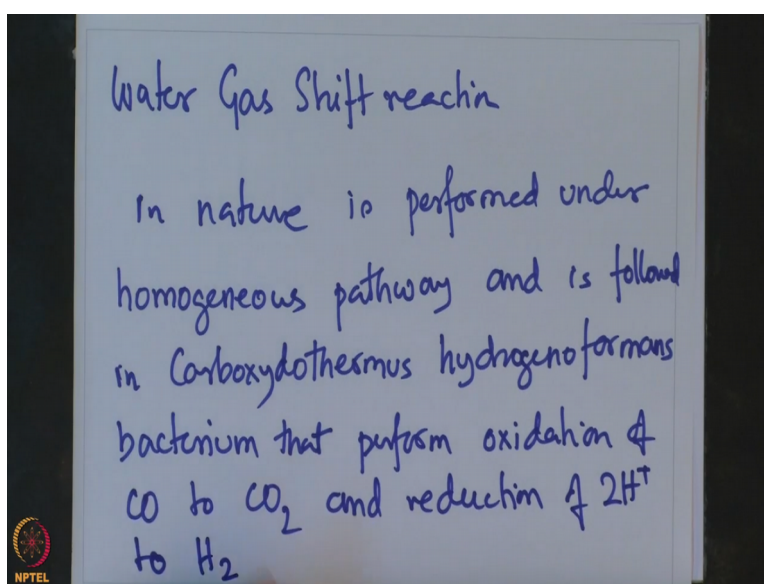 Water Gas Shift reaction
In nature is performed under
homogeneous pathway and is followed
in Carboxydothermus hydrogenoformans
bacterium that perform oxidation of
CO to CO₂ and reduction of 2H⁺
to H₂
NPTEL